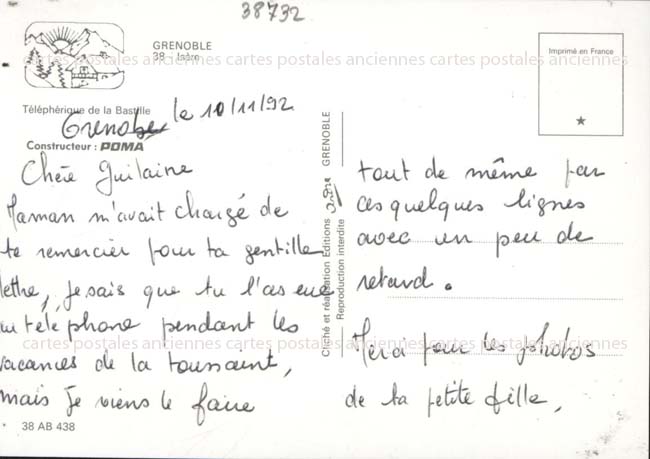 38732
GRENOBLE
38 - Isère
Imprimé en France
cartes postales anciennes cartes postales anciennes cartes postales anciennes
Téléphérique de la Bastille
Grenoble le 10/11/92
Constructeur : POMA
Chère Guilaine
Maman m'avait chargé de
te remercier pour ta gentille
lettre, je sais que tu l'as eue
au téléphone pendant les
vacances de la toussaint,
mais je viens le faire
38 AB 438
Cliché et réalisation Editions GRENOBLE
Reproduction interdite
tout de même par
ces quelques lignes
avec un peu de
retard.
Merci pour les photos
de ta petite fille,
cartes postales anciennes cartes postales anciennes cartes postales anciennes